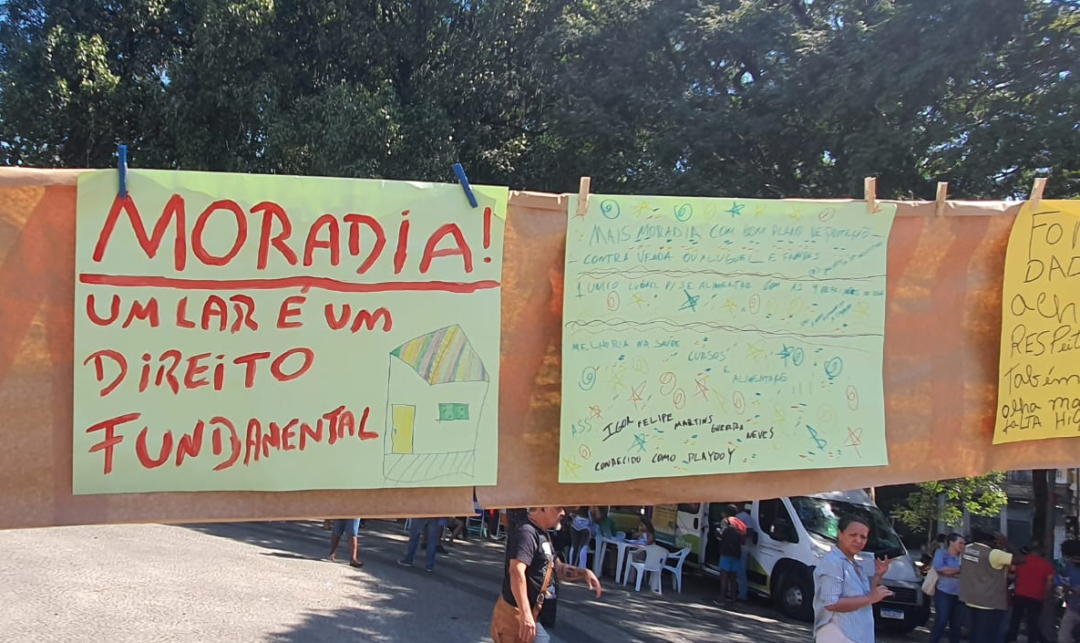 MORADIA!
UM LAR É UM
DIREITO
FUNDAMENTAL
MAIS MORADIA COM BOM PLANO DE PROTEÇÃO
CONTRA VENDA OU ALUGUEL E
1 UNICO LUGAR P/ SE ALIMENTAR COM AS
MELHORIA NA SAÚDE
CURSOS
E
ALIMENTAÇÃO
ASS
IGOR FELIPE MARTINS GUERRA NEVES
CONHECIDO COMO PLAYBOY
FO
DAD
ach
RESPeit
Também
olha ma
faLTA HIG